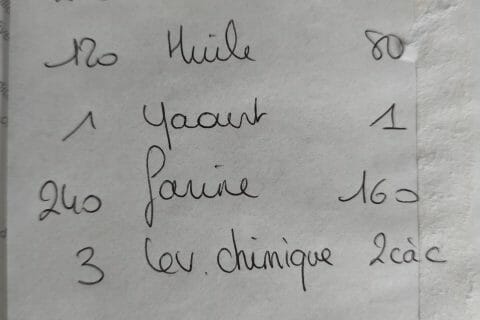 120 Huile 80
1 Yaourt 1
240 farine 160
3 lev. chimique 2càc